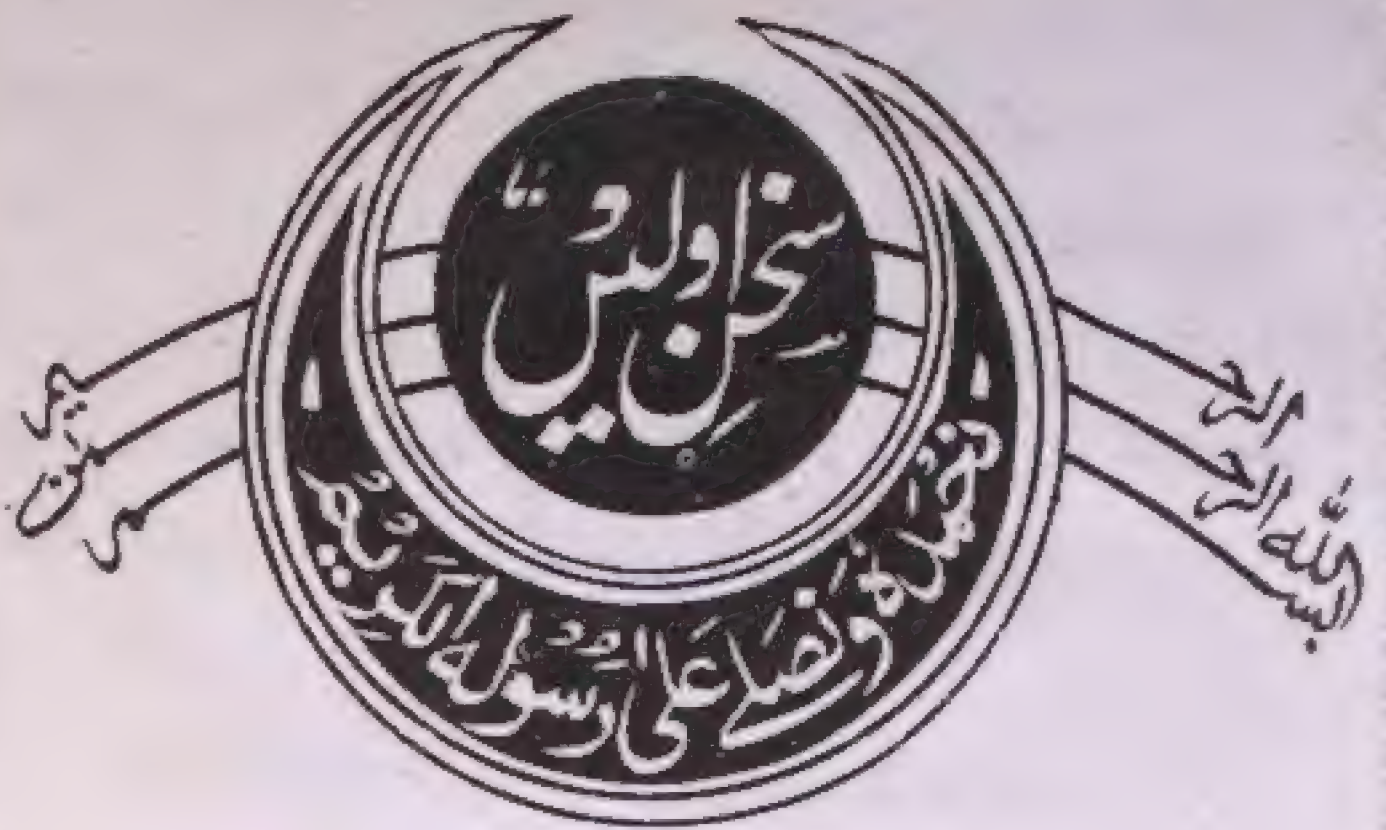 بسم الله الرحمن الرحيم
سخنِ اولیں
نحمدہٗ ونصلے علیٰ رسولہ الکریم